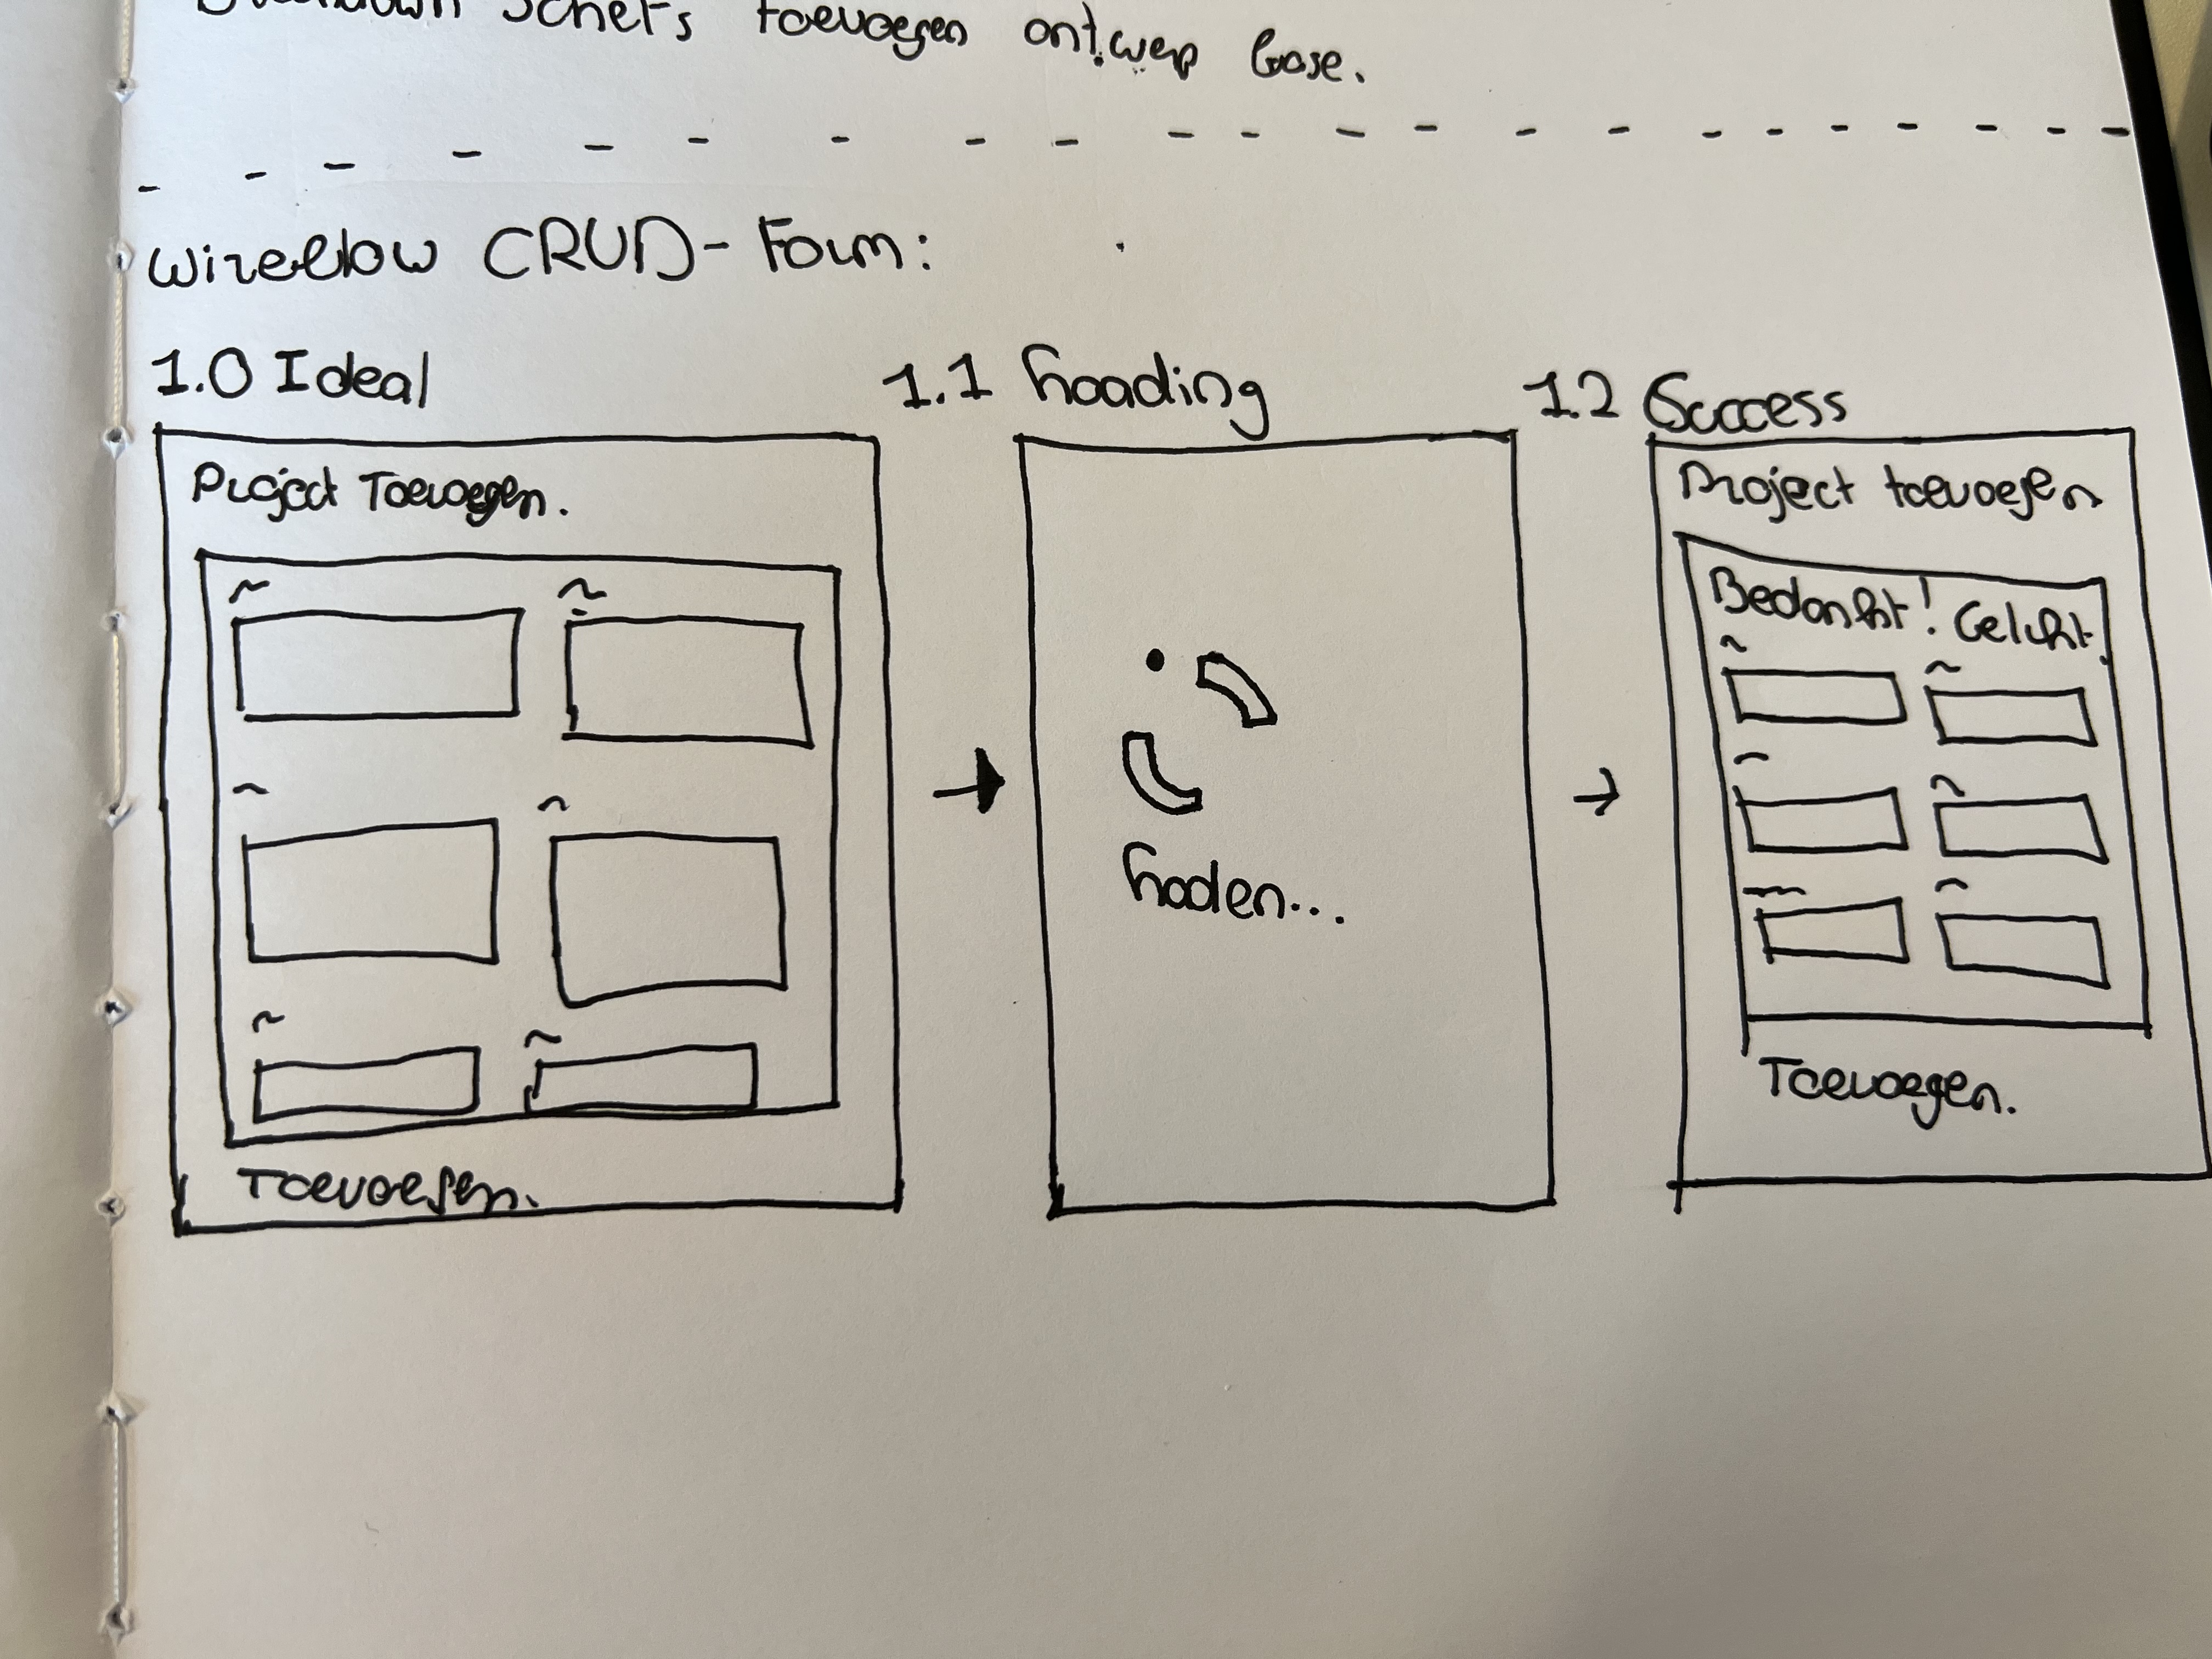 schets toevoegen ontwerp base.
Wireflow CRUD-Form:
1.0 Ideal
Project Toevoegen.
Toevoegen.
1.1 Loading
Laden...
1.2 Success
Project toevoegen
Bedankt! Gelukt
Toevoegen.